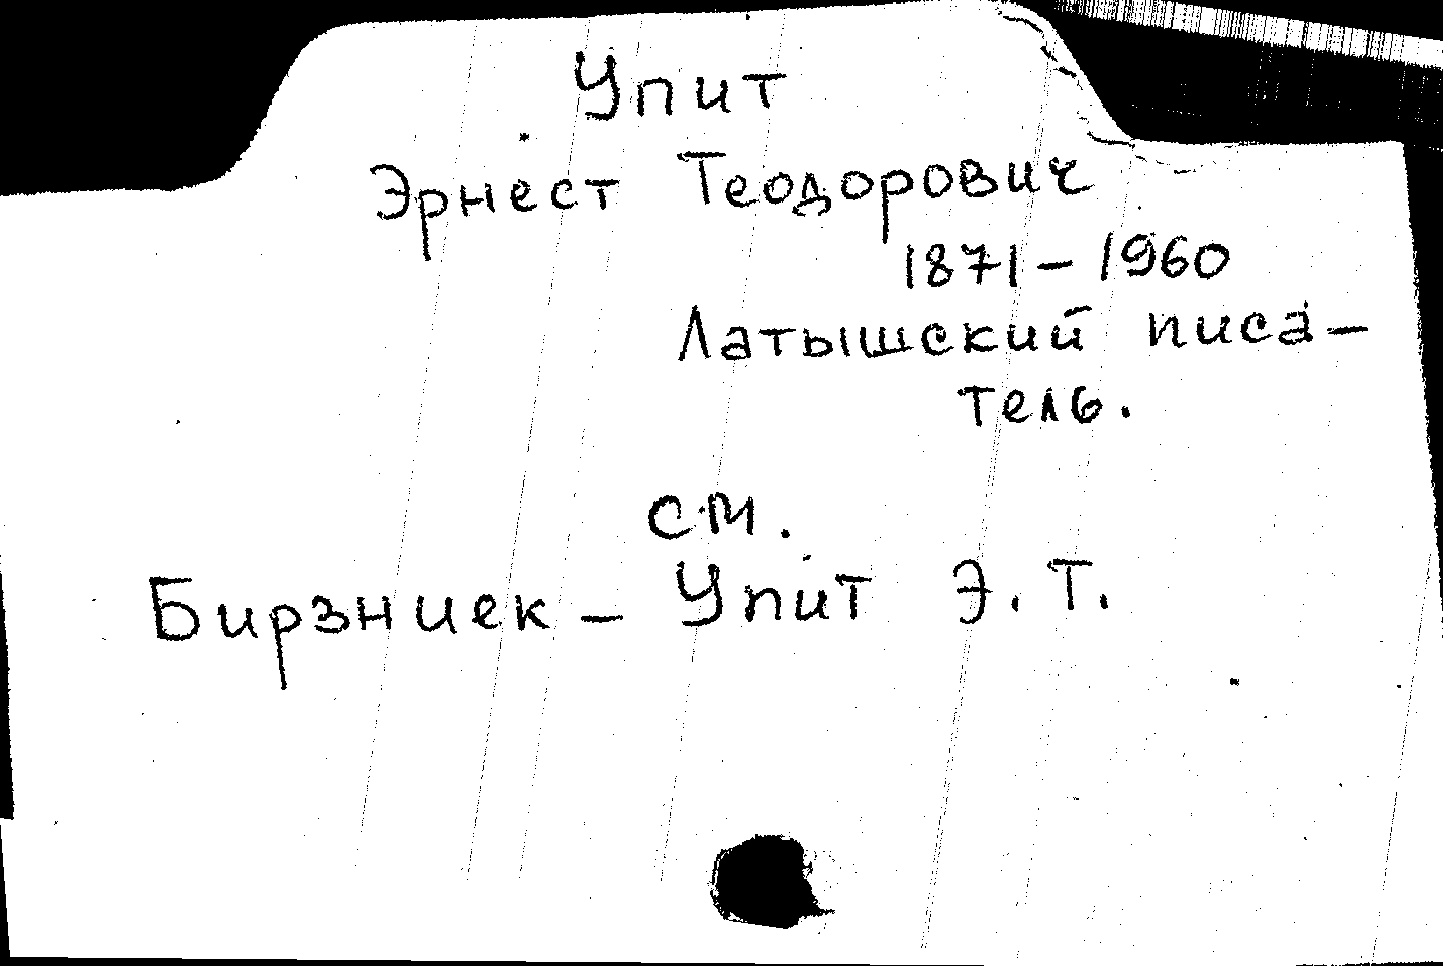 Упит
Эрнест Теодорович
1871-1960
Латышский писа-
тель.
см.
Бирзниек-Упит Э.Т.